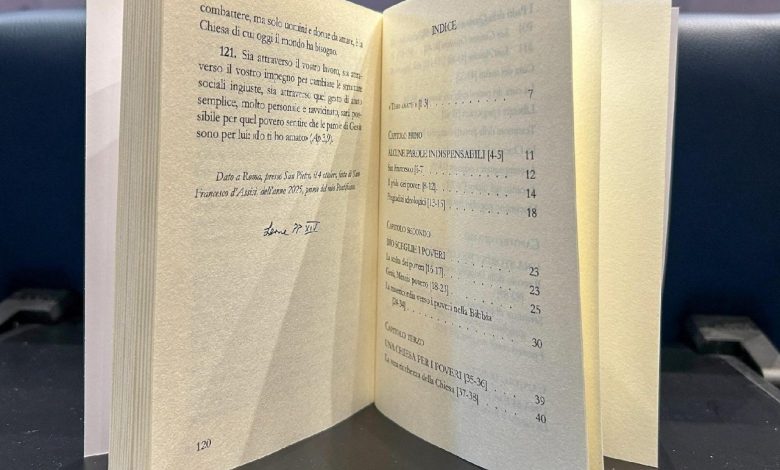 combattere, ma solo uomini e donne da amare, è la
Chiesa di cui oggi il mondo ha bisogno.
121. Sia attraverso il vostro lavoro, sia attra-
verso il vostro impegno per cambiare le strutture
sociali ingiuste, sia attraverso quel gesto di aiuto
semplice, molto personale e ravvicinato, sarà pos-
sibile per quel povero sentire che le parole di Gesù
sono per lui: «Io ti ho amato» (Ap 3,9).
Dato a Roma, presso San Pietro, il 4 ottobre, festa di San
Francesco d'Assisi, dell'anno 2025, primo del mio Pontificato.
Leone PP XIV
120
INDICE
«Ti ho amato» [1-3] 7
Capitolo primo
ALCUNE PAROLE INDISPENSABILI [4-5] 11
San Francesco [6-7] 12
Il grido dei poveri [8-12] 14
Pregiudizi ideologici [13-15] 18
Capitolo secondo
DIO SCEGLIE I POVERI 23
La scelta dei poveri [16-17] 23
Gesù, Messia povero [18-21] 25
La misericordia verso i poveri nella Bibbia
[24-34] 30
Capitolo terzo
UNA CHIESA PER I POVERI [35-36] 39
La vera ricchezza della Chiesa [37-38] 40